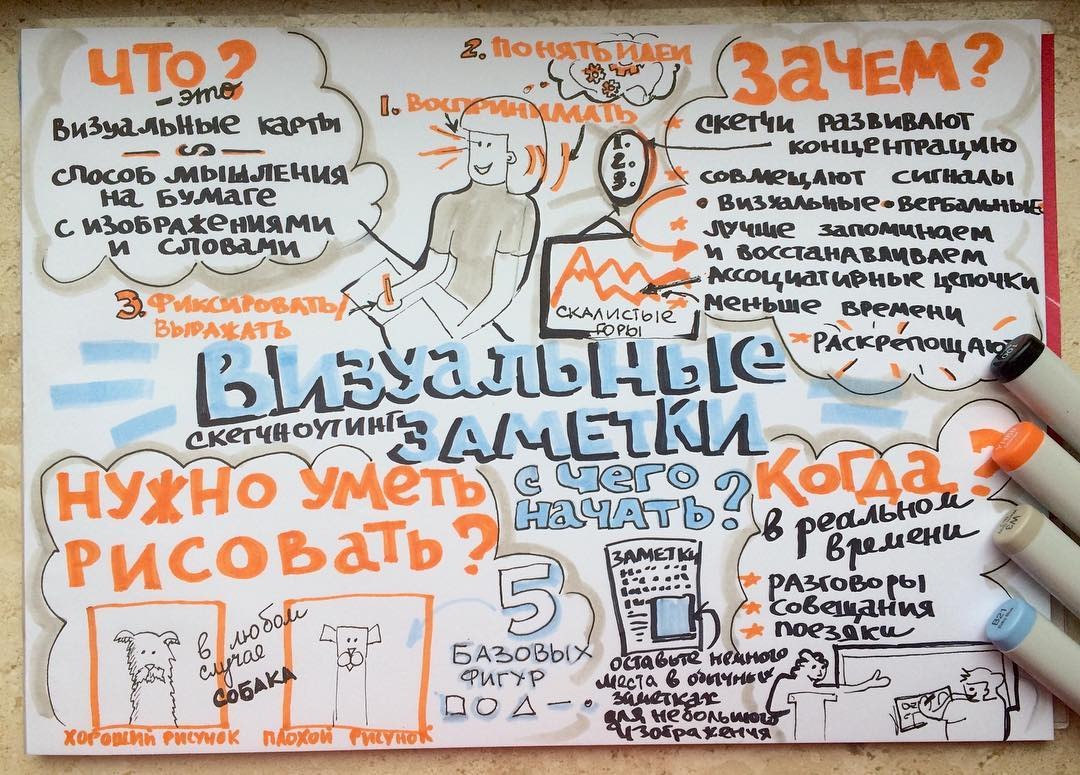 ЧТО?
- это
ВИЗУАЛЬНЫЕ КАРТЫ
СПОСОБ МЫШЛЕНИЯ
НА БУМАГЕ
С ИЗОБРАЖЕНИЯМИ
И СЛОВАМИ
2. ПОНЯТЬ ИДЕИ
1. ВОСПРИНИМАТЬ
3. ФИКСИРОВАТЬ/
ВЫРАЖАТЬ
1.
2.
3.
СКАЛИСТЫЕ
ГОРЫ
ЗАЧЕМ?
СКЕТЧИ РАЗВИВАЮТ
КОНЦЕНТРАЦИЮ
СОВМЕЩАЮТ СИГНАЛЫ
• ВИЗУАЛЬНЫЕ • ВЕРБАЛЬНЫЕ
ЛУЧШЕ ЗАПОМИНАЕМ
И ВОССТАНАВЛИВАЕМ
АССОЦИАТИВНЫЕ ЦЕПОЧКИ
МЕНЬШЕ ВРЕМЕНИ
РАСКРЕПОЩАЮТ
ВИЗУАЛЬНЫЕ
ЗАМЕТКИ
СКЕТЧНОУТИНГ
НУЖНО УМЕТЬ
РИСОВАТЬ?
в любом
случае
СОБАКА
ХОРОШИЙ РИСУНОК
ПЛОХОЙ РИСУНОК
С ЧЕГО
НАЧАТЬ?
5
БАЗОВЫХ
ФИГУР
ЗАМЕТКИ
ОСТАВЬТЕ НЕМНОГО
МЕСТА В ОБЫЧНЫХ
ЗАМЕТКАХ
ДЛЯ НЕБОЛЬШОГО
ИЗОБРАЖЕНИЯ
КОГДА?
В РЕАЛЬНОМ
ВРЕМЕНИ
РАЗГОВОРЫ
СОВЕЩАНИЯ
ПОЕЗДКИ
W3
B21